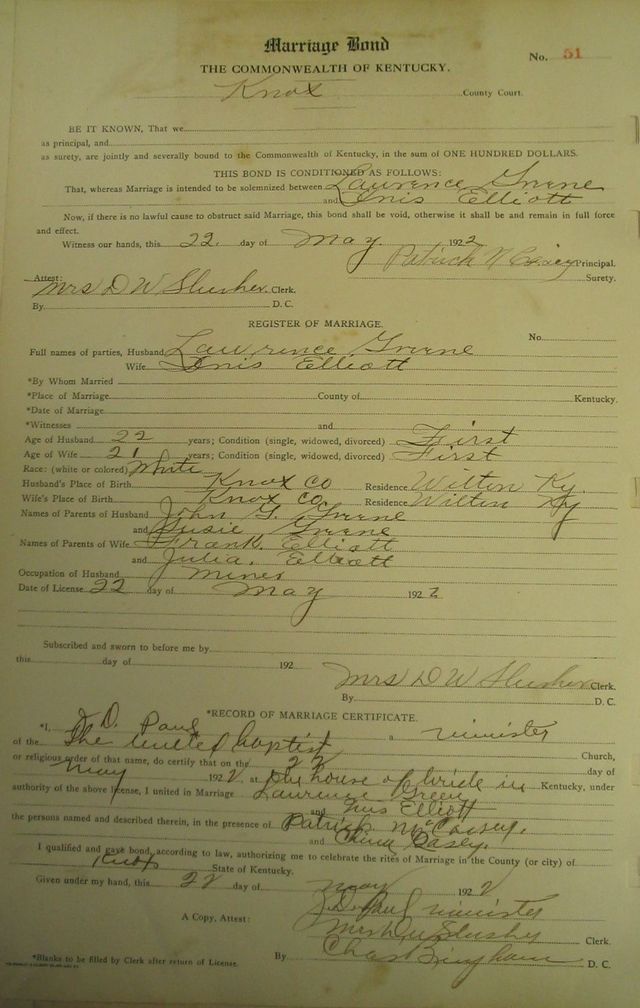 Marriage Bond
No. 51
THE COMMONWEALTH OF KENTUCKY.
Knox County Court.
BE IT KNOWN, That we
as principal, and
as surety, are jointly and severally bound to the Commonwealth of Kentucky, in the sum of ONE HUNDRED DOLLARS.
THIS BOND IS CONDITIONED AS FOLLOWS:
That, whereas Marriage is intended to be solemnized between Lawrence Greene
and Inis Elliott
Now, if there is no lawful cause to obstruct said Marriage, this bond shall be void, otherwise it shall be and remain in full force
and effect.
Witness our hands, this 22. day of May 1922
Patrick Principal.
Attest: Surety.
Mrs D W Slusher Clerk.
By D. C.
REGISTER OF MARRIAGE.
No.
Full names of parties, Husband, Lawrence Greene
Wife Inis Elliott
*By Whom Married
*Place of Marriage County of Kentucky.
*Date of Marriage
*Witnesses and
Age of Husband 22 years; Condition (single, widowed, divorced) First
Age of Wife 21 years; Condition (single, widowed, divorced) First
Race: (white or colored) White
Husband's Place of Birth Knox Co Residence Wilton Ky.
Wife's Place of Birth Knox Co. Residence Wilton Ky
Names of Parents of Husband John G. Greene
and Susie Greene
Names of Parents of Wife Frank. Elliott
and Julia. Elliott
Occupation of Husband Miner
Date of License 22 day of May 1922
Subscribed and sworn to before me by
this day of 192
Mrs D W Slusher Clerk.
By D. C.
*RECORD OF MARRIAGE CERTIFICATE.
*I, J. D. Paul a minister
of the The united baptist Church,
or religious order of that name, do certify that on the 22 day of
May 1922 at The house of bride in Kentucky, under
authority of the above license, I united in Marriage Laurence Green
and Inis Elliott
the persons named and described therein, in the presence of Patrick
and Casey.
I qualified and gave bond, according to law, authorizing me to celebrate the rites of Marriage in the County (or city) of
Knox State of Kentucky.
Given under my hand, this 22 day of May 1922
J. D. Paul minister
A Copy, Attest: Mrs D W Slusher Clerk.
*Blanks to be filled by Clerk after return of License. By Chas Bingham D. C.